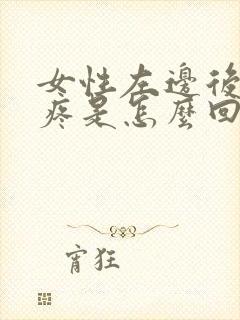 女性左邊後
疼是怎麼回
宵狂